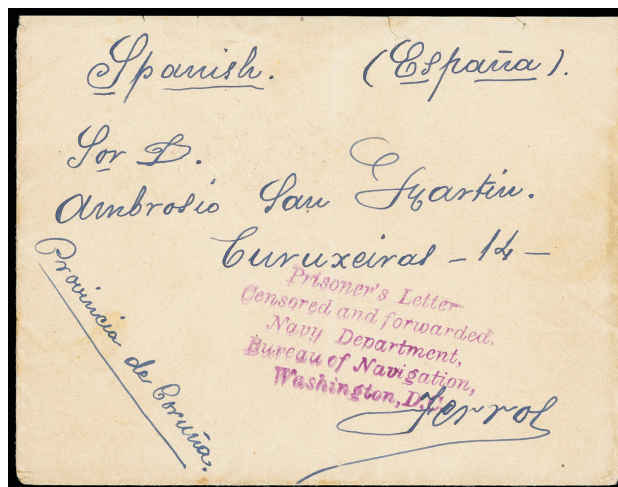 Spanish. (España).
Sor D.
Ambrosio San Martin.
Curuxeiras - 14 -
Prisoner's Letter
Censored and forwarded.
Navy Department,
Bureau of Navigation,
Washington, D.C.
Ferrol
Provincia de Coruña.